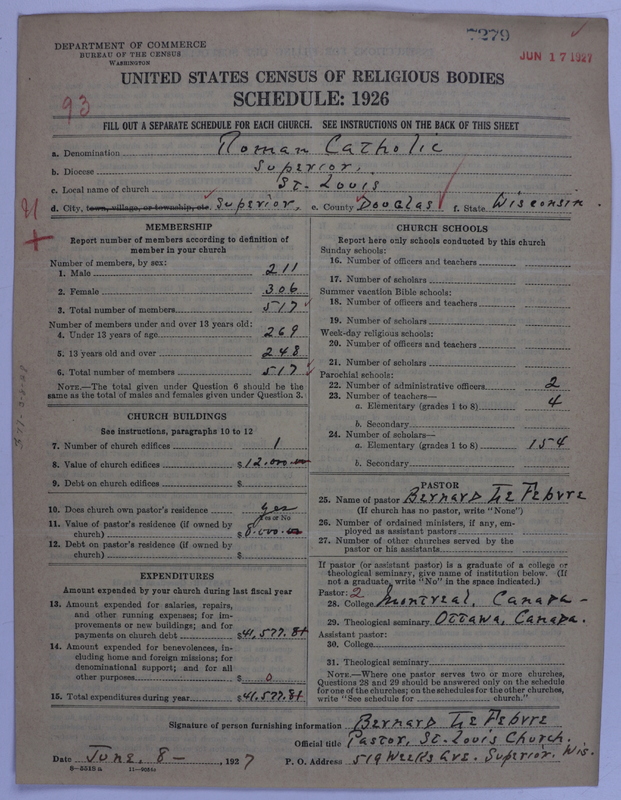 7279
JUN 17 1927
DEPARTMENT OF COMMERCE
BUREAU OF THE CENSUS
WASHINGTON
UNITED STATES CENSUS OF RELIGIOUS BODIES
SCHEDULE: 1926
93
FILL OUT A SEPARATE SCHEDULE FOR EACH CHURCH. SEE INSTRUCTIONS ON THE BACK OF THIS SHEET
a. Denomination Roman Catholic
b. Diocese Superior,
c. Local name of church St. Louis
d. City, town, village, or township, etc. Superior, e. County Douglas f. State Wisconsin.
MEMBERSHIP
Report number of members according to definition of
member in your church
Number of members, by sex:
1. Male 211
2. Female 306
3. Total number of members 517
Number of members under and over 13 years old:
4. Under 13 years of age 269
5. 13 years old and over 248
6. Total number of members 517
NOTE.—The total given under Question 6 should be the
same as the total of males and females given under Question 3.
CHURCH BUILDINGS
See instructions, paragraphs 10 to 12
7. Number of church edifices 1
8. Value of church edifices $12,000.00
9. Debt on church edifices $
10. Does church own pastor's residence? yes
Yes or No
11. Value of pastor's residence (if owned by
church) $8,000.00
12. Debt on pastor's residence (if owned by
church) $
EXPENDITURES
Amount expended by your church during last fiscal year
13. Amount expended for salaries, repairs,
and other running expenses; for im-
provements or new buildings; and for
payments on church debt $41,577.81
14. Amount expended for benevolences, in-
cluding home and foreign missions; for
denominational support; and for all
other purposes $ 0
15. Total expenditures during year $41,577.81
CHURCH SCHOOLS
Report here only schools conducted by this church
Sunday schools:
16. Number of officers and teachers
17. Number of scholars
Summer vacation Bible schools:
18. Number of officers and teachers
19. Number of scholars
Week-day religious schools:
20. Number of officers and teachers
21. Number of scholars
Parochial schools:
22. Number of administrative officers 2
23. Number of teachers—
a. Elementary (grades 1 to 8) 4
b. Secondary
24. Number of scholars—
a. Elementary (grades 1 to 8) 154
b. Secondary
PASTOR
25. Name of pastor Bernard Le Febvre
(If church has no pastor, write "None")
26. Number of ordained ministers, if any, em-
ployed as assistant pastors
27. Number of other churches served by the
pastor or his assistants
If pastor (or assistant pastor) is a graduate of a college or
theological seminary, give name of institution below. (If
not a graduate, write "No" in the space indicated.)
Pastor: 2
28. College Montreal, Canada -
29. Theological seminary Ottawa, Canada.
Assistant pastor:
30. College
31. Theological seminary
NOTE.—Where one pastor serves two or more churches,
Questions 28 and 29 should be answered only on the schedule
for one of the churches; on the schedules for the other churches,
write "See schedule for church."
Signature of person furnishing information Bernard Le Febvre
Official title Pastor, St. Louis Church.
Date June, 8 -, 1927 P. O. Address 519 Weeks Ave. Superior, Wis.